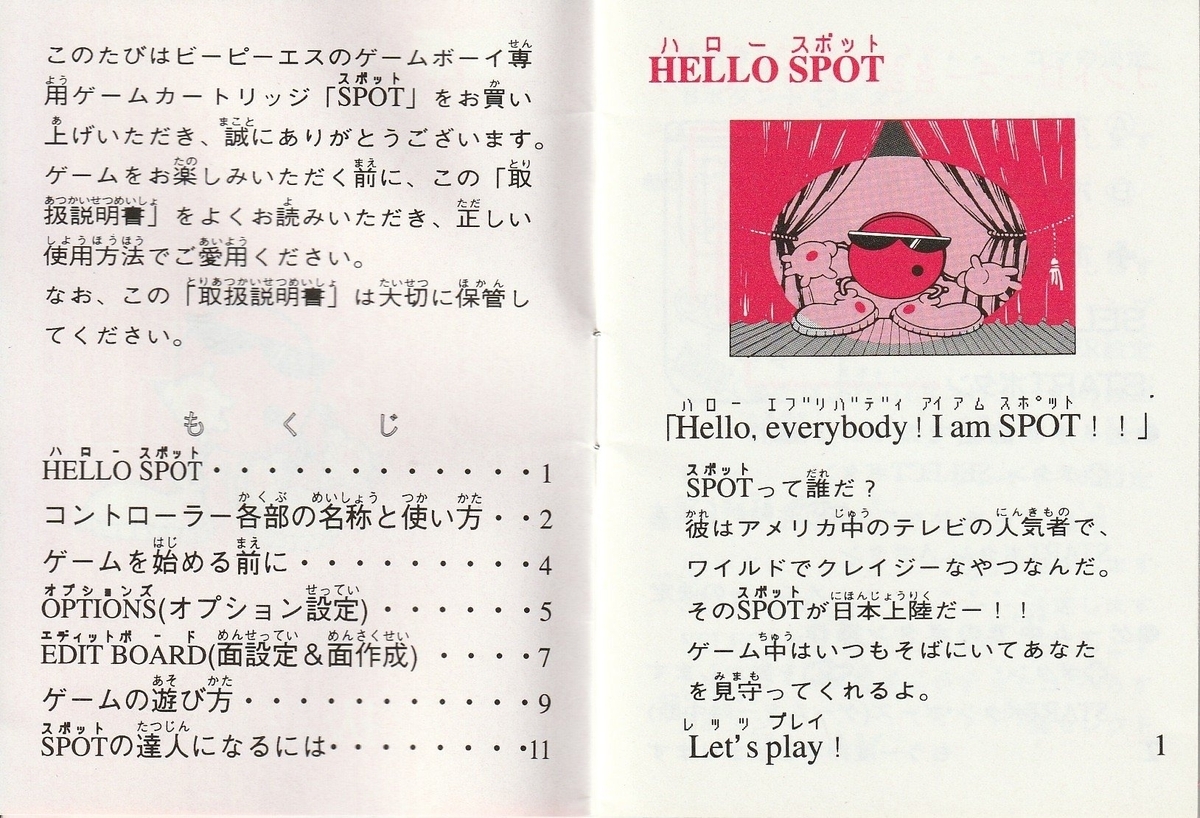 このたびはビーピーエスのゲームボーイ専
用ゲームカートリッジ「SPOT」をお買い
上げいただき、誠にありがとうございます。
ゲームをお楽しみいただく前に、この「取
扱説明書」をよくお読みいただき、正しい
使用方法でご愛用ください。
なお、この「取扱説明書」は大切に保管し
てください。
もくじ
HELLO SPOT・・・・・・・・・・・・・1
コントローラー各部の名称と使い方・・2
ゲームを始める前に・・・・・・・・・・4
OPTIONS(オプション設定)・・・・・・・5
EDIT BOARD(面設定&面作成)・・・・7
ゲームの遊び方・・・・・・・・・・・・9
SPOTの達人になるには・・・・・・・・11
ハロー スポット
HELLO SPOT
ハロー エブリバディ アイ アム スポット
「Hello, everybody! I am SPOT!!」
SPOTって誰だ?
彼はアメリカ中のテレビの人気者で、
ワイルドでクレイジーなやつなんだ。
そのSPOTが日本上陸だー!!
ゲーム中はいつもそばにいてあなた
を見守ってくれるよ。
レッツ プレイ
Let's play!
1